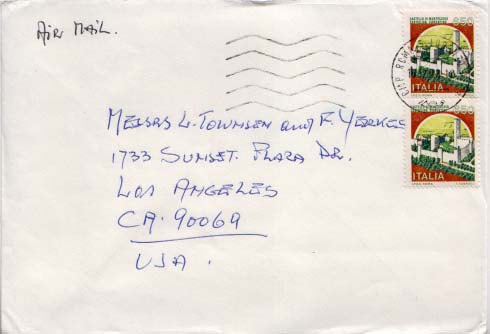 AIR MAIL.
650
ITALIA
650
ITALIA
MESSRS L. TOWNSEN and F. YERKES
1733 SUNSET PLAZA DR.
LOS ANGELES
CA. 90069
USA.